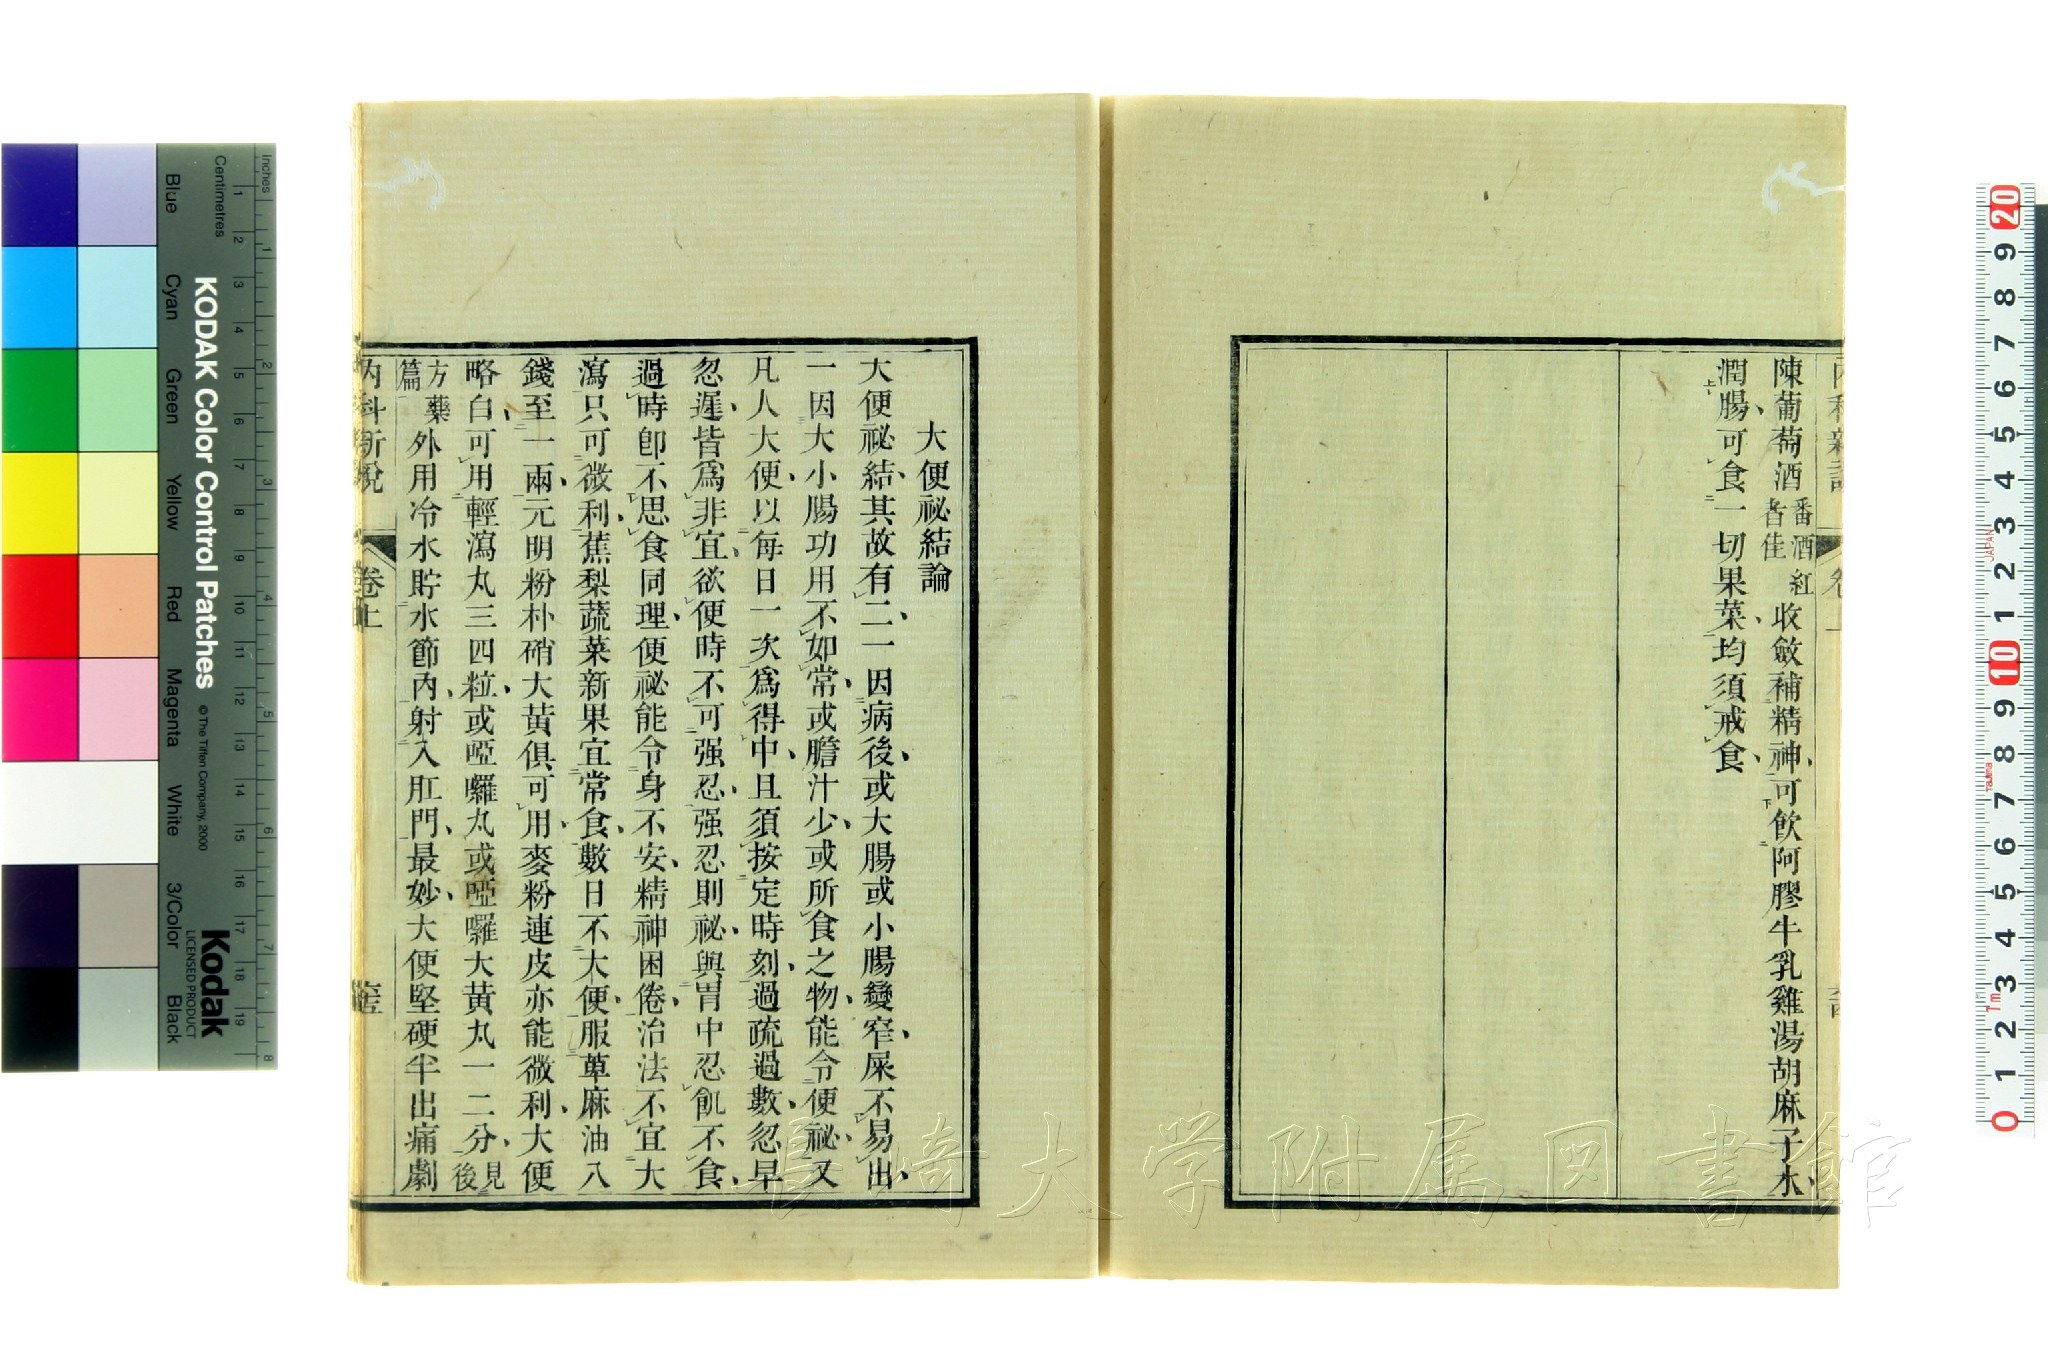 陳葡萄酒番酒紅者佳收斂補精神、可飲阿膠牛乳雞湯胡麻子水、
潤腸、可食一切果菜、均須戒食、
卷上
大便祕結論
大便祕結、其故有二、一因病後、或大腸或小腸變窄、屎不易出、
一因大小腸功用不如常、或膽汁少、或所食之物、能令便祕、又
凡人大便、以每日一次爲得中、且須按定時刻、過疏過數、忽早
忽遲、皆爲非宜、欲便時不可强忍、强忍則祕、與胃中忍飢不食、
過時卽不思食同理、便祕能令身不安、精神困倦、治法不宜大
瀉、只可微利、蕉梨蔬菜新果宜常食、數日不大便、服萆麻油八
錢至一兩、元明粉朴硝大黃俱可用、麥粉連皮亦能微利、大便
略白、可用輕瀉丸三四粒、或啞囉丸、或啞囉大黃丸一二分、見後
方藥篇外用冷水貯水節內、射入肛門、最妙、大便堅硬半出痛劇
內科新說
卷上
KODAK Color Control Patches
© The Tiffen Company, 2000
Kodak
LICENSED PRODUCT
Inches
Centimetres
Blue
Cyan
Green
Yellow
Red
Magenta
White
3/Color
Black
JAPAN
Tajima
長崎大学附属図書館